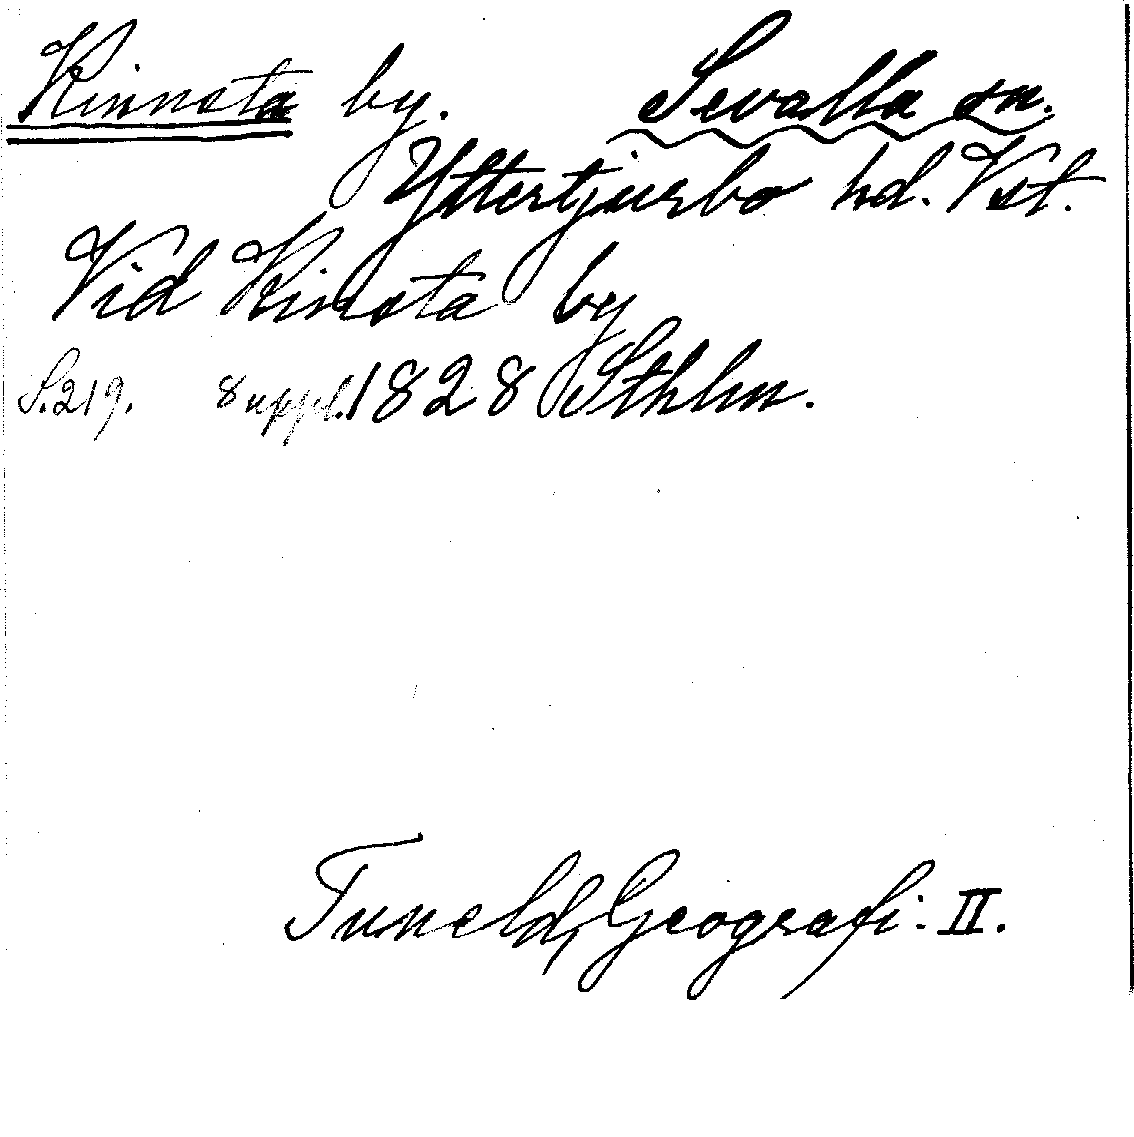 Kinnsta by. Sevalla sn.
Yttertjurbo hd. Vst.
Vid Kinsta by
S. 219. 8 uppl. 1828 Sthlm.
Tuneld, Geografi. II.